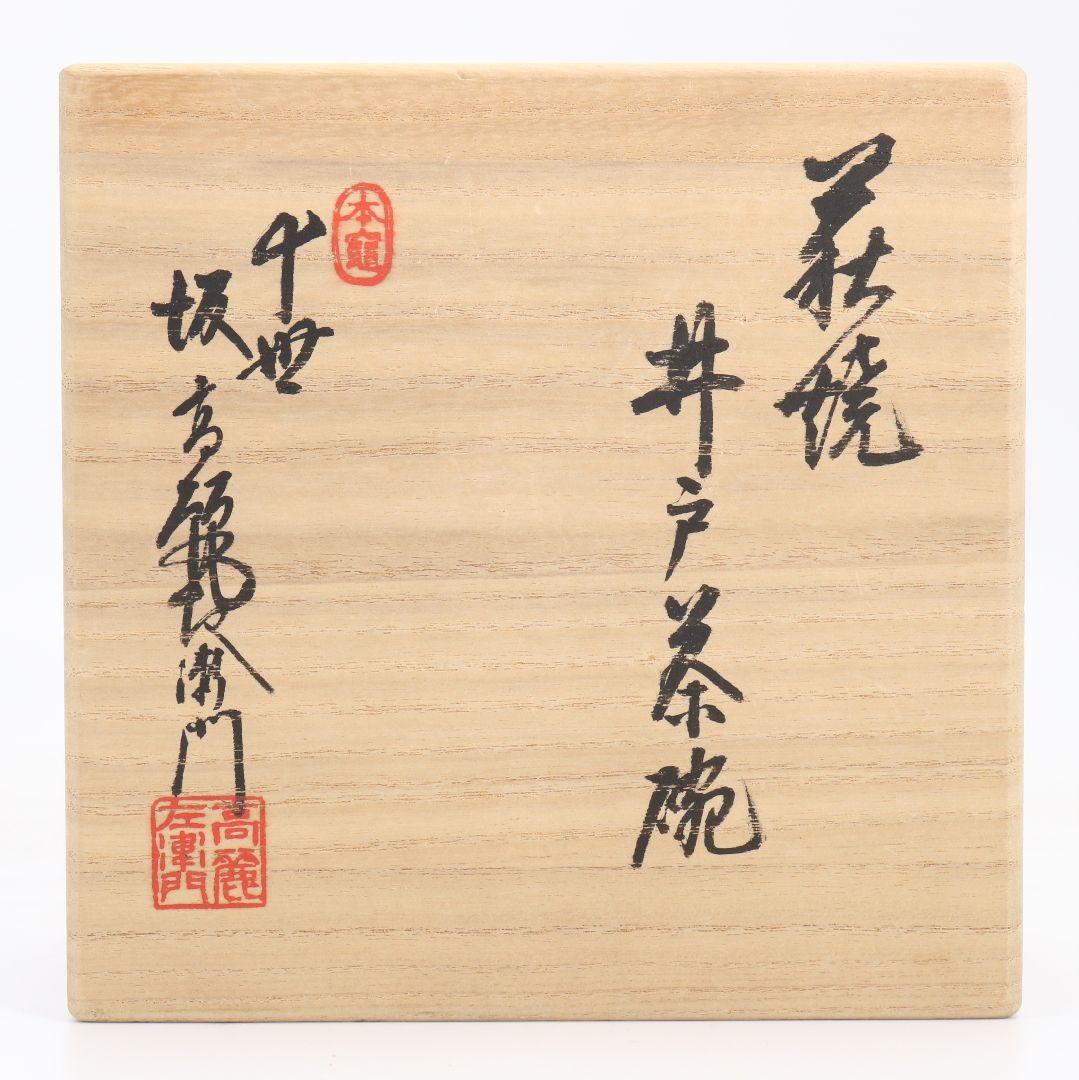 萩焼
井戸茶碗
本窯
十世
坂高麗左衛門
高麗左衛門